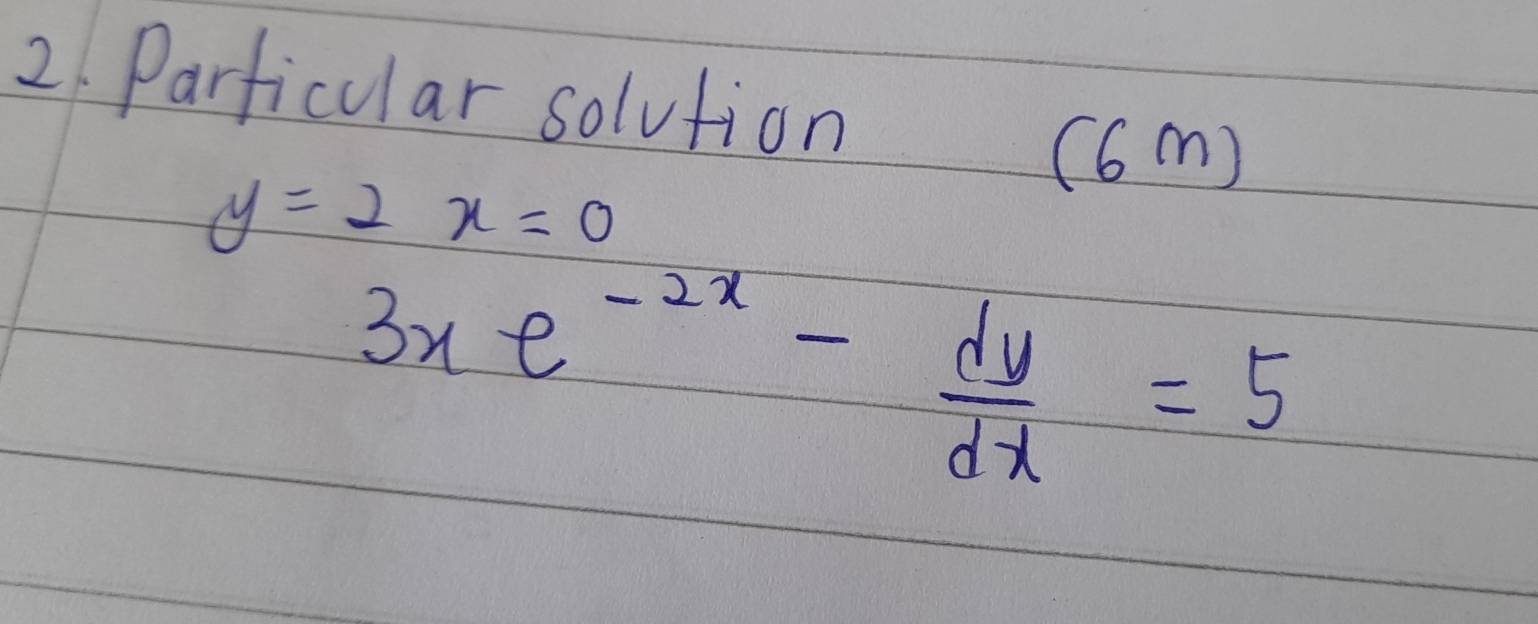 2. Particular solution (6 m)
y = 2 x = 0
3x e^{-2x} - \frac{dy}{dx} = 5